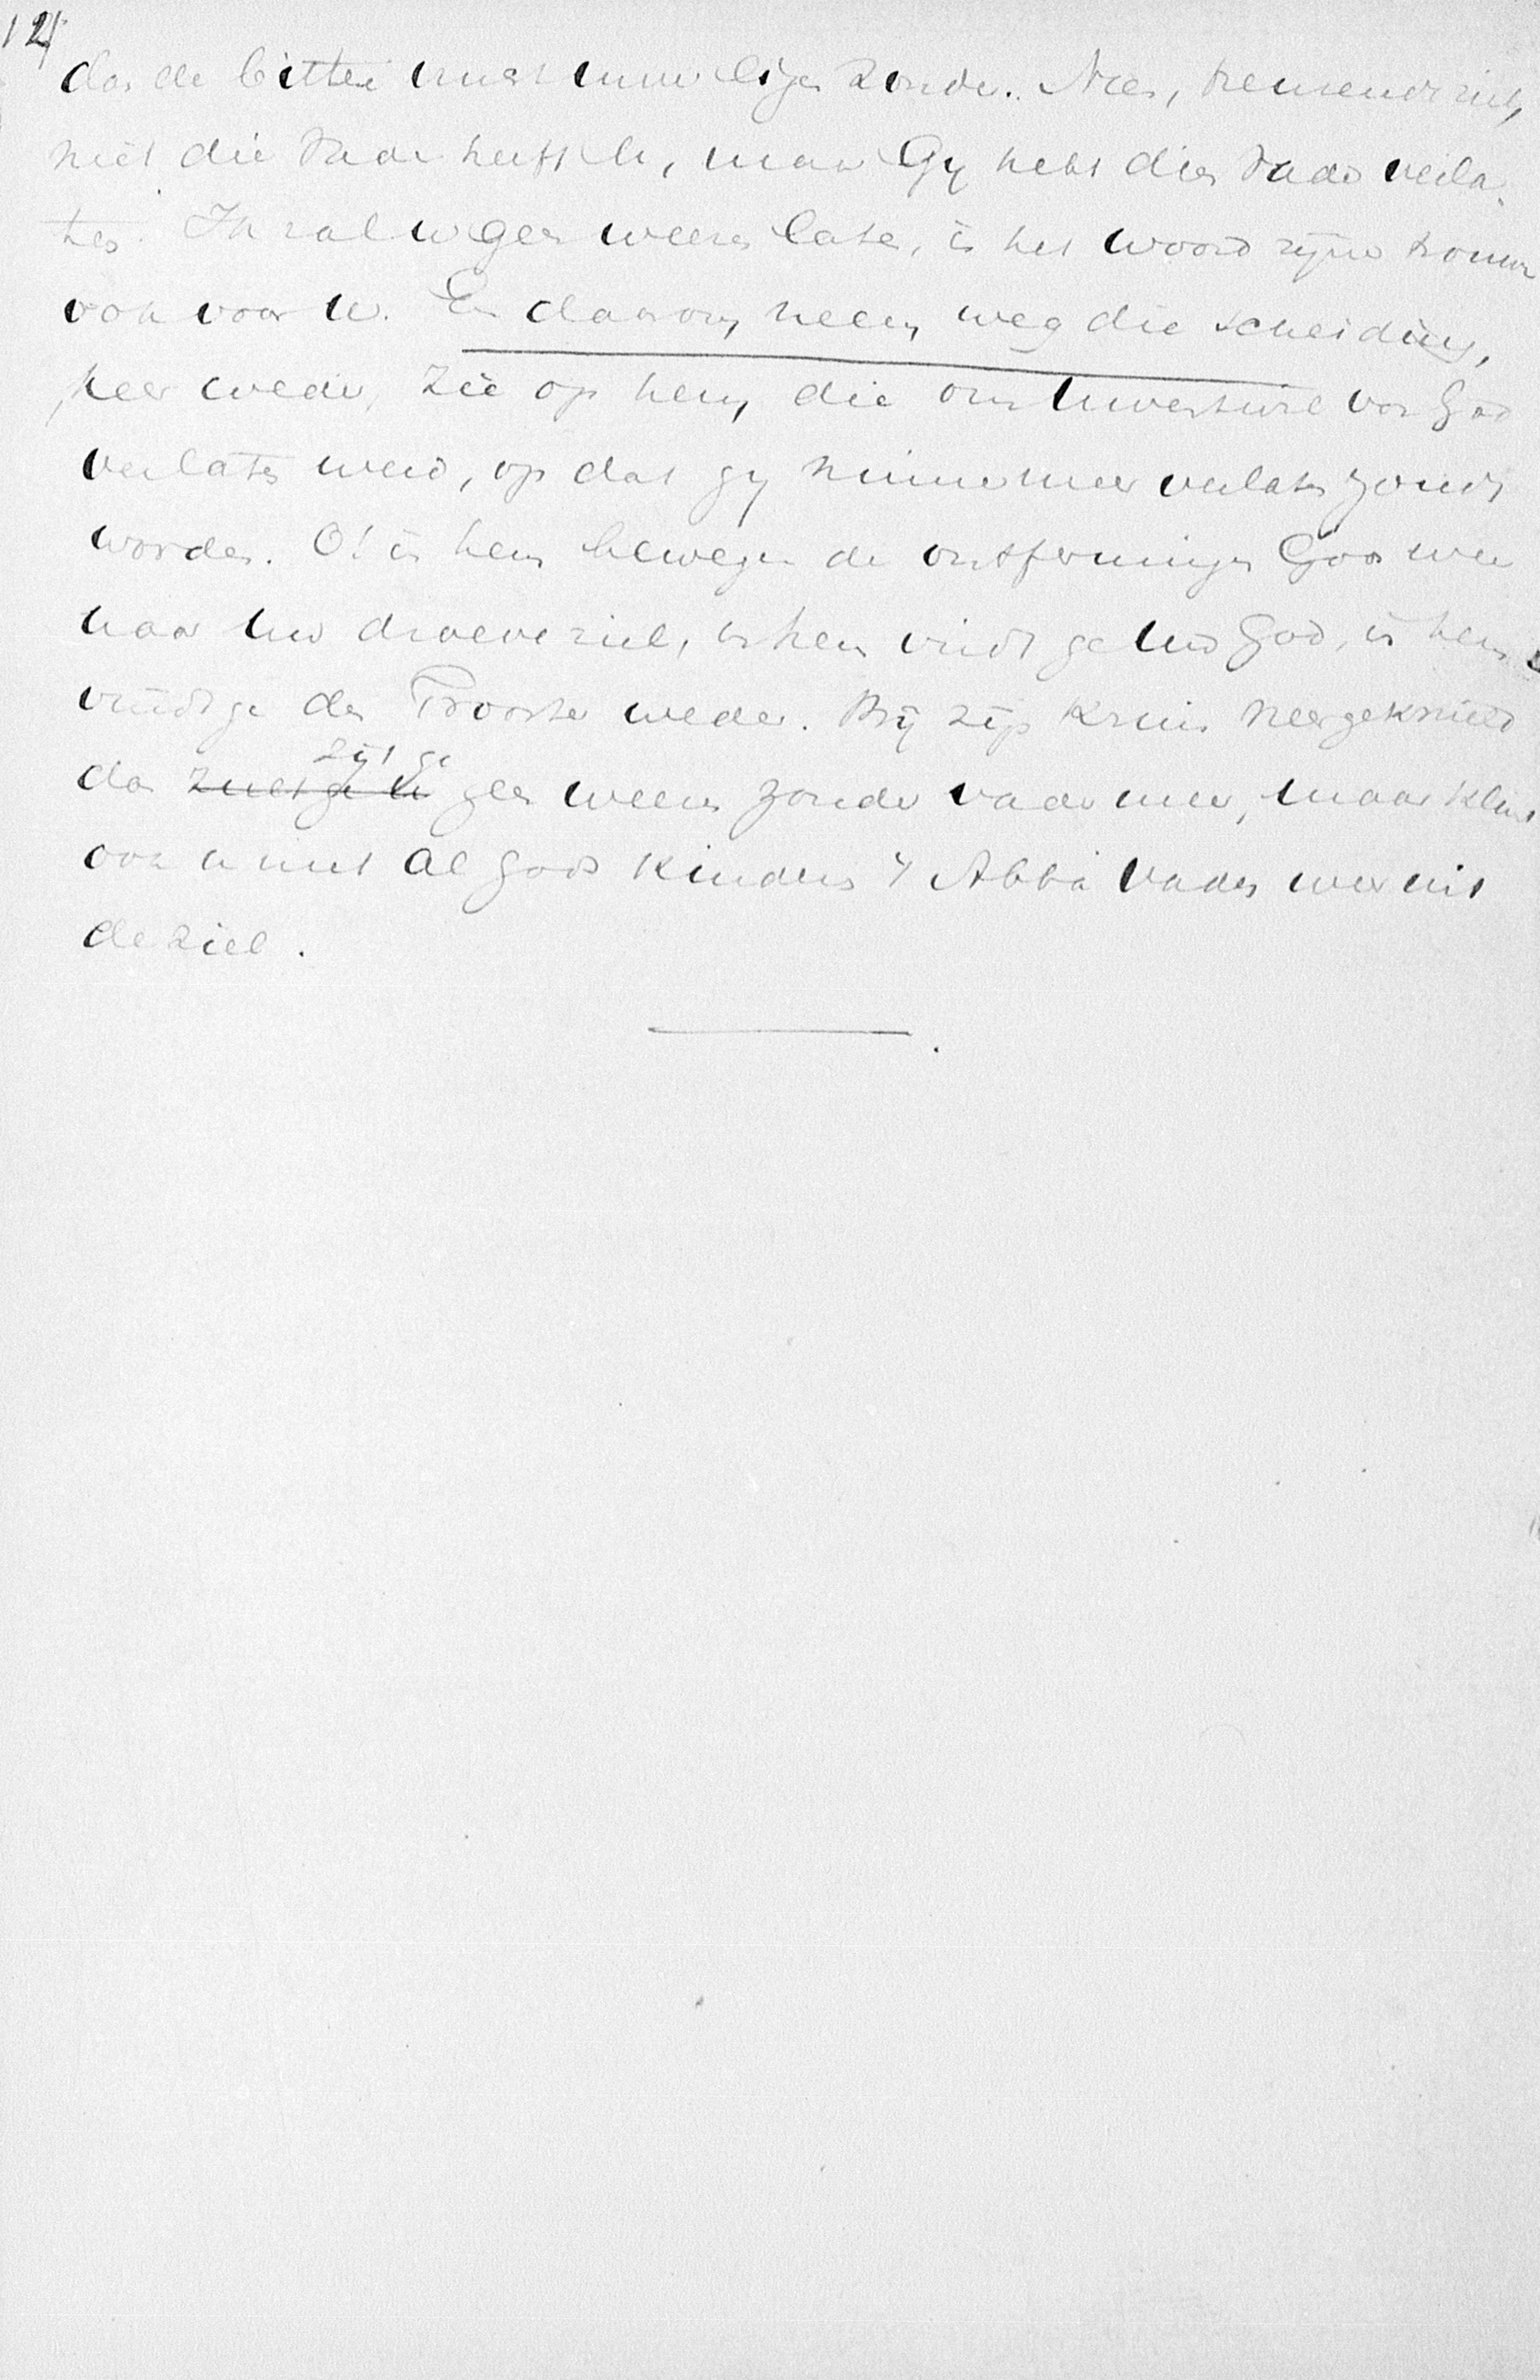 12
dan de bittere vrucht uwer eigen zonde. Neen, treurend kind,
niet die Vader heeft U, maar Gy hebt dien Vader verla-
ten. Ik zal u geen weezen laten, is het woord zyner trouw
ook voor U. En daarom, neem weg die scheiding,
keer weder, zie op hem, die om Uwentwil van God
verlaten werd, op dat gy nimmermeer verlaten zoudt
worden. O! in hem bewegen de ontfermingen Gods weer
naar uw droeve ziel, in hem vindt ge uw God, in hem
vindt ge den Trooster weder. Bij zijn Kruis neergeknield
zijt ge
dan zult ge U geen weeze zonder vader meer, maar klinkt
ook u met al Gods kinderen 't Abba Vader weer uit
de ziel.